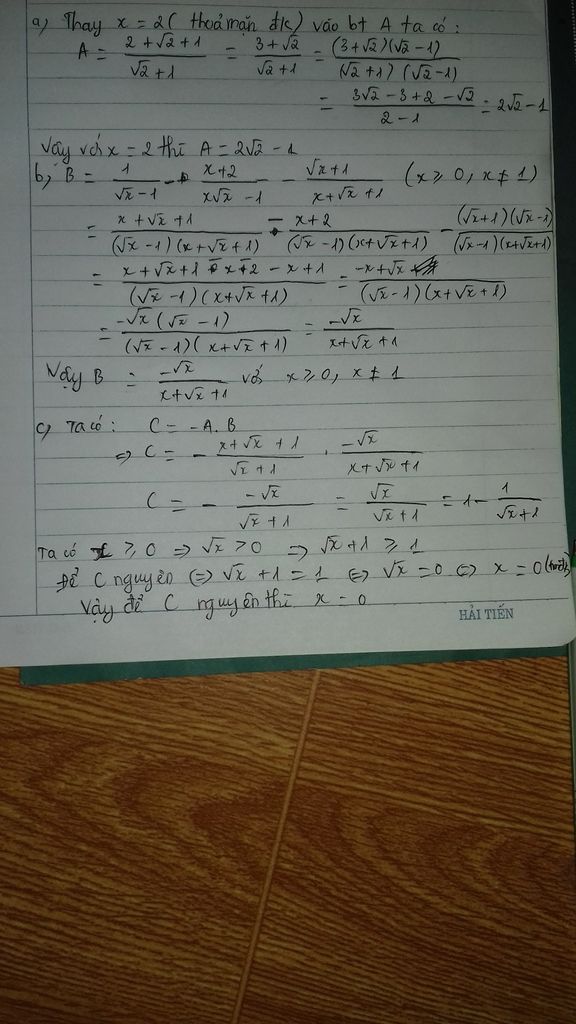 a) Thay x = 2 ( thoả mãn đk) vào bt A ta có :
A = (2 + √2 + 1)/(√2 + 1) = (3 + √2)/(√2 + 1) = ((3 + √2)(√2 - 1))/((√2 + 1)(√2 - 1))
= (3√2 - 3 + 2 - √2)/(2 - 1) = 2√2 - 1
Vậy với x = 2 thì A = 2√2 - 1
b, B = 1/(√x - 1) - (x + 2)/(x√x - 1) - (√x + 1)/(x + √x + 1) (x ≥ 0, x ≠ 1)
= (x + √x + 1)/((√x - 1)(x + √x + 1)) - (x + 2)/((√x - 1)(x + √x + 1)) - ((√x + 1)(√x - 1))/((√x - 1)(x + √x + 1))
= (x + √x + 1 - x - 2 - x + 1)/((√x - 1)(x + √x + 1)) = (-x + √x)/((√x - 1)(x + √x + 1))
= (-√x(√x - 1))/((√x - 1)(x + √x + 1)) = (-√x)/(x + √x + 1)
Vậy B = (-√x)/(x + √x + 1) với x ≥ 0, x ≠ 1
c, Ta có : C = -A.B
⇒ C = - (x + √x + 1)/(√x + 1) . (-√x)/(x + √x + 1)
C = - (-√x)/(√x + 1) = (√x)/(√x + 1) = 1 - 1/(√x + 1)
Ta có x ≥ 0 ⇒ √x ≥ 0 ⇒ √x + 1 ≥ 1
Để C nguyên ⇔ √x + 1 = 1 ⇔ √x = 0 ⇔ x = 0 (tmđk)
Vậy để C nguyên thì x = 0
HẢI TIẾN